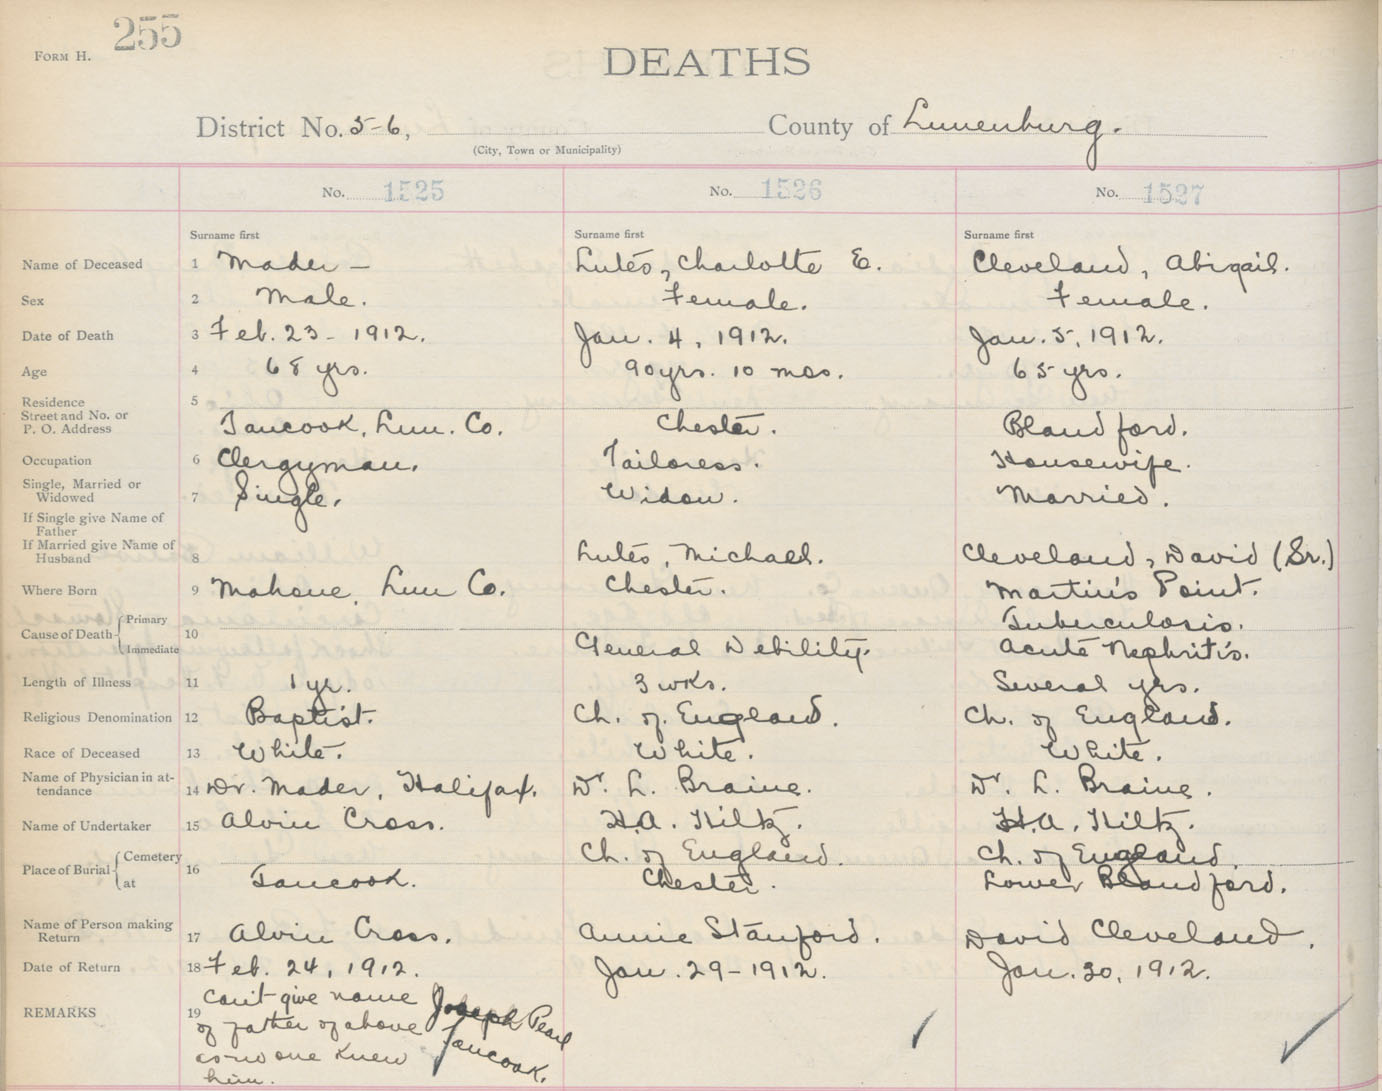 255
FORM H.
DEATHS
District No. 5-6, County of Lunenburg.
(City, Town or Municipality)
No. 1525 No. 1526 No. 1527
Surname first Surname first Surname first
Name of Deceased 1 Mader - Lutes, Charlotte E. Cleveland, Abigail.
Sex 2 Male. Female. Female.
Date of Death 3 Feb. 23 - 1912. Jan. 4, 1912. Jan. 5, 1912.
Age 4 68 yrs. 90 yrs. 10 mos. 65 yrs.
Residence 5
Street and No. or
P. O. Address Tancook, Lun. Co. Chester. Blandford.
Occupation 6 Clergyman. Tailoress. Housewife.
Single, Married or
Widowed 7 Single. Widow. Married.
If Single give Name of
Father
If Married give Name of
Husband 8 Lutes, Michael. Cleveland, David (Sr.)
Where Born 9 Mahone, Lun Co. Chester. Martin's Point.
Cause of Death Primary 10 Tuberculosis.
Immediate General Debility. Acute Nephritis.
Length of Illness 11 1 yr. 3 wks. Several yrs.
Religious Denomination 12 Baptist. Ch. of England. Ch. of England.
Race of Deceased 13 White. White. White.
Name of Physician in at-
tendance 14 Dr. Mader, Halifax. Dr. L. Braine. Dr. L. Braine.
Name of Undertaker 15 Alvin Cross. H.A. Hiltz. H.A. Hiltz.
Place of Burial Cemetery 16 Ch. of England. Ch. of England.
at Tancook. Chester. Lower Blandford.
Name of Person making
Return 17 Alvin Cross. Annie Stanford. David Cleveland.
Date of Return 18 Feb. 24, 1912. Jan. 29-1912. Jan. 30, 1912.
REMARKS 19 Can't give name
of father of above
as no one knew
him.
Joseph Pearl
Tancook.